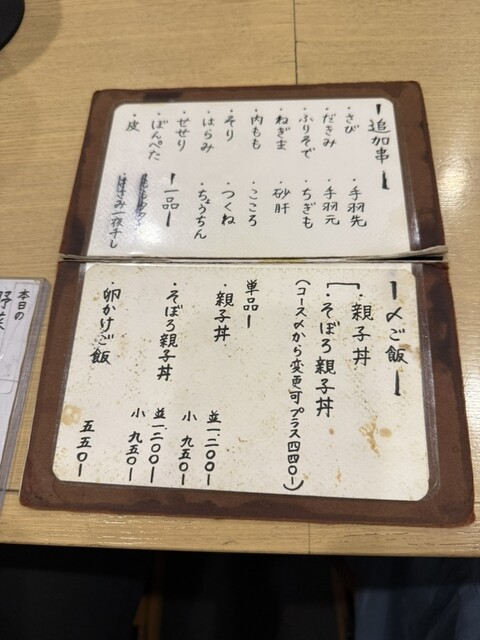 ー追加串ー
・さび
・だきみ
・ふりそで
・ねぎま
・内もも
・そり
・はらみ
・せせり
・ぼんぺた
・皮
・手羽先
・手羽元
・ちぎも
・砂肝
・こころ
・つくね
・ちょうちん
ー一品ー
・はさみ一夜干し
ー〆ご飯ー
・親子丼
・そぼろ親子丼
(コース〆から変更可プラス四四〇ー)
単品ー
・親子丼
並一、二〇〇ー
小 九五〇ー
・そぼろ親子丼
並一、二〇〇ー
小 九五〇ー
・卵かけご飯
五五〇ー
本日の
野菜